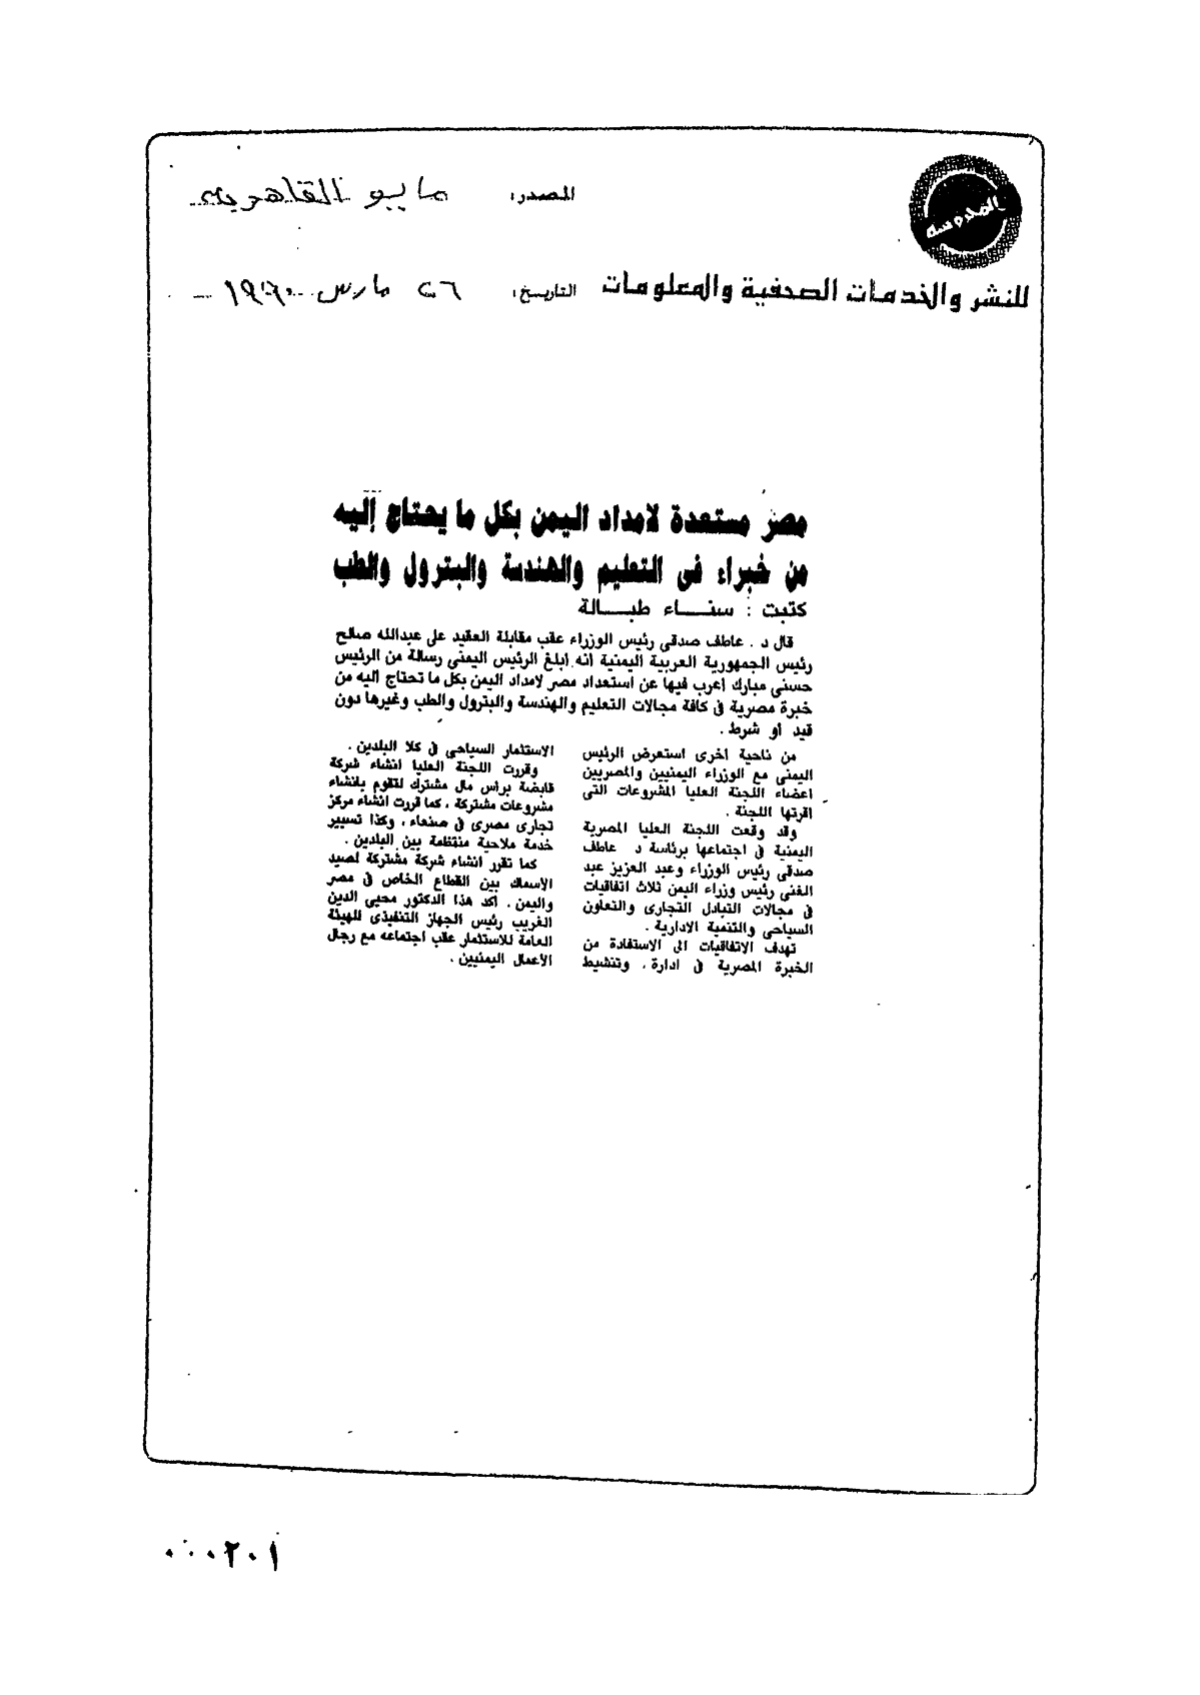 المحروسة
للنشر والخدمات الصحفية والمعلومات
المصدر: مايو القاهرية
التاريخ: ٢٦ مارس
مصر مستعدة لامداد اليمن بكل ما يحتاج إليه
من خبراء فى التعليم والهندسة والبترول والطب
كتبت : سناء طبالة
قال د . عاطف صدقى رئيس الوزراء عقب مقابلة العقيد على عبدالله صالح
رئيس الجمهورية العربية اليمنية انه ابلغ الرئيس اليمنى رسالة من الرئيس
حسنى مبارك اعرب فيها عن استعداد مصر لامداد اليمن بكل ما تحتاج اليه من
خبرة مصرية فى كافة مجالات التعليم والهندسة والبترول والطب وغيرها دون
قيد أو شرط .
من ناحية اخرى استعرض الرئيس
اليمنى مع الوزراء اليمنيين والمصريين
اعضاء اللجنة العليا المشروعات التى
اقرتها اللجنة .
وقد وقعت اللجنة العليا المصرية
اليمنية فى اجتماعها برئاسة د عاطف
صدقى رئيس الوزراء وعبد العزيز عبد
الغنى رئيس وزراء اليمن ثلاث اتفاقيات
فى مجالات التبادل التجارى والتعاون
السياحى والتنمية الادارية .
تهدف الاتفاقيات الى الاستفادة من
الخبرة المصرية فى ادارة ، وتنشيط
الاستثمار السياحى فى كلا البلدين .
وقررت اللجنة العليا انشاء شركة
قابضة براس مال مشترك لتقوم بانشاء
مشروعات مشتركة ، كما قررت انشاء مركز
تجارى مصرى فى صنعاء ، وكذا تسيير
خدمة ملاحية منتظمة بين البلدين .
كما تقرر انشاء شركة مشتركة لصيد
الاسماك بين القطاع الخاص فى مصر
واليمن . اكد هذا الدكتور محيى الدين
الغريب رئيس الجهاز التنفيذى للهيئة
العامة للاستثمار عقب اجتماعه مع رجال
الأعمال اليمنيين .
٠٠٠٢٠١